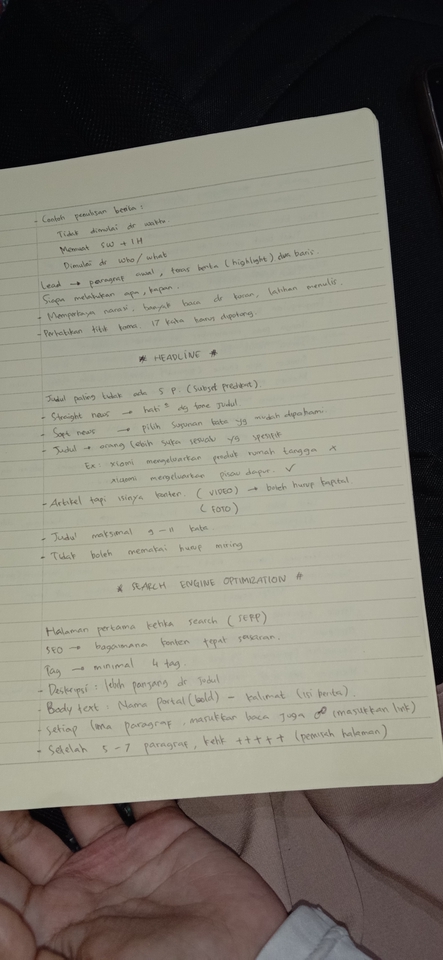 - Contoh penulisan berita :
Tidak dimulai dr waktu.
Memuat 5W + 1H
Dimulai dr who/what
Lead → paragraf awal, teras berita (highlight) dua baris.
Siapa melakukan apa, kapan.
- Memperkaya narasi, banyak baca dr koran, latihan menulis.
- Perhatikan titik koma. 17 kata harus dipotong.
* HEADLINE *
Judul paling tidak ada S P. (Subjek predikat)
- Straight news → hati² dg tone judul
- Soft news → pilih susunan kata yg mudah dipahami.
- Judul → orang lebih suka sesuatu yg spesifik
Ex : xiaomi mengeluarkan produk rumah tangga x
xiaomi mengeluarkan pisau dapur. ✓
- Artikel tapi isinya konten. (VIDEO) → boleh hurup kapital
(FOTO)
- Judul maksimal 9 - 11 kata
- Tidak boleh memakai hurup miring
* SEARCH ENGINE OPTIMIZATION *
Halaman pertama ketika search (SERP)
SEO → bagaimana konten tepat sasaran.
Tag → minimal 4 tag.
- Deskripsi : lebih panjang dr judul
- Body text : Nama portal (bold) - kalimat (isi berita).
- setiap lima paragraf, masukkan baca juga (masukkan link)
- Setelah 5 - 7 paragraf, ketik +++++ (pemisah halaman)